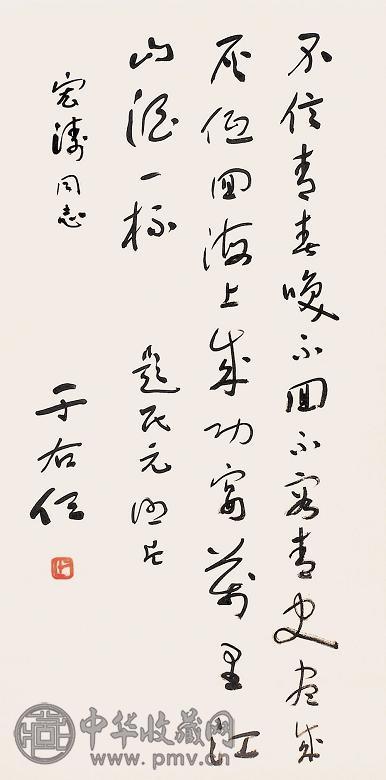 不信青春喚不回不容青史盡成
灰低回海上成功宴萬里江
山酒一杯 題民元照片
宏濤同志
于右任
中华收藏网
www.pmv.cn